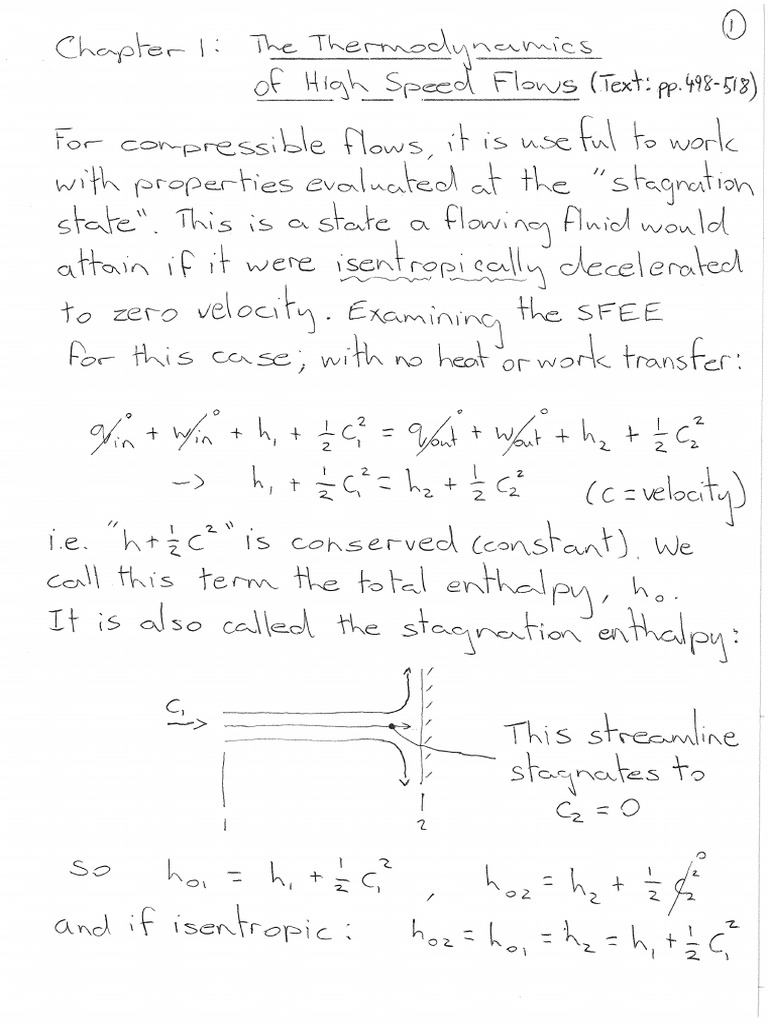 1
Chapter 1: The Thermodynamics
of High Speed Flows (Text: pp. 498-518)
For compressible flows, it is useful to work
with properties evaluated at the "stagnation
state". This is a state a flowing fluid would
attain if it were isentropically decelerated
to zero velocity. Examining the SFEE
for this case; with no heat or work transfer:
q_in⁰ + w_in⁰ + h₁ + ½ C₁² = q_out⁰ + w_out⁰ + h₂ + ½ C₂²
-> h₁ + ½ C₁² = h₂ + ½ C₂² (C = velocity)
i.e. "h + ½ C²" is conserved (constant). We
call this term the total enthalpy, h₀.
It is also called the stagnation enthalpy:
C₁
This streamline
stagnates to
C₂ = 0
1 2
so h₀₁ = h₁ + ½ C₁² , h₀₂ = h₂ + ½ C₂² ⁰
and if isentropic: h₀₂ = h₀₁ = h₂ = h₁ + ½ C₁²